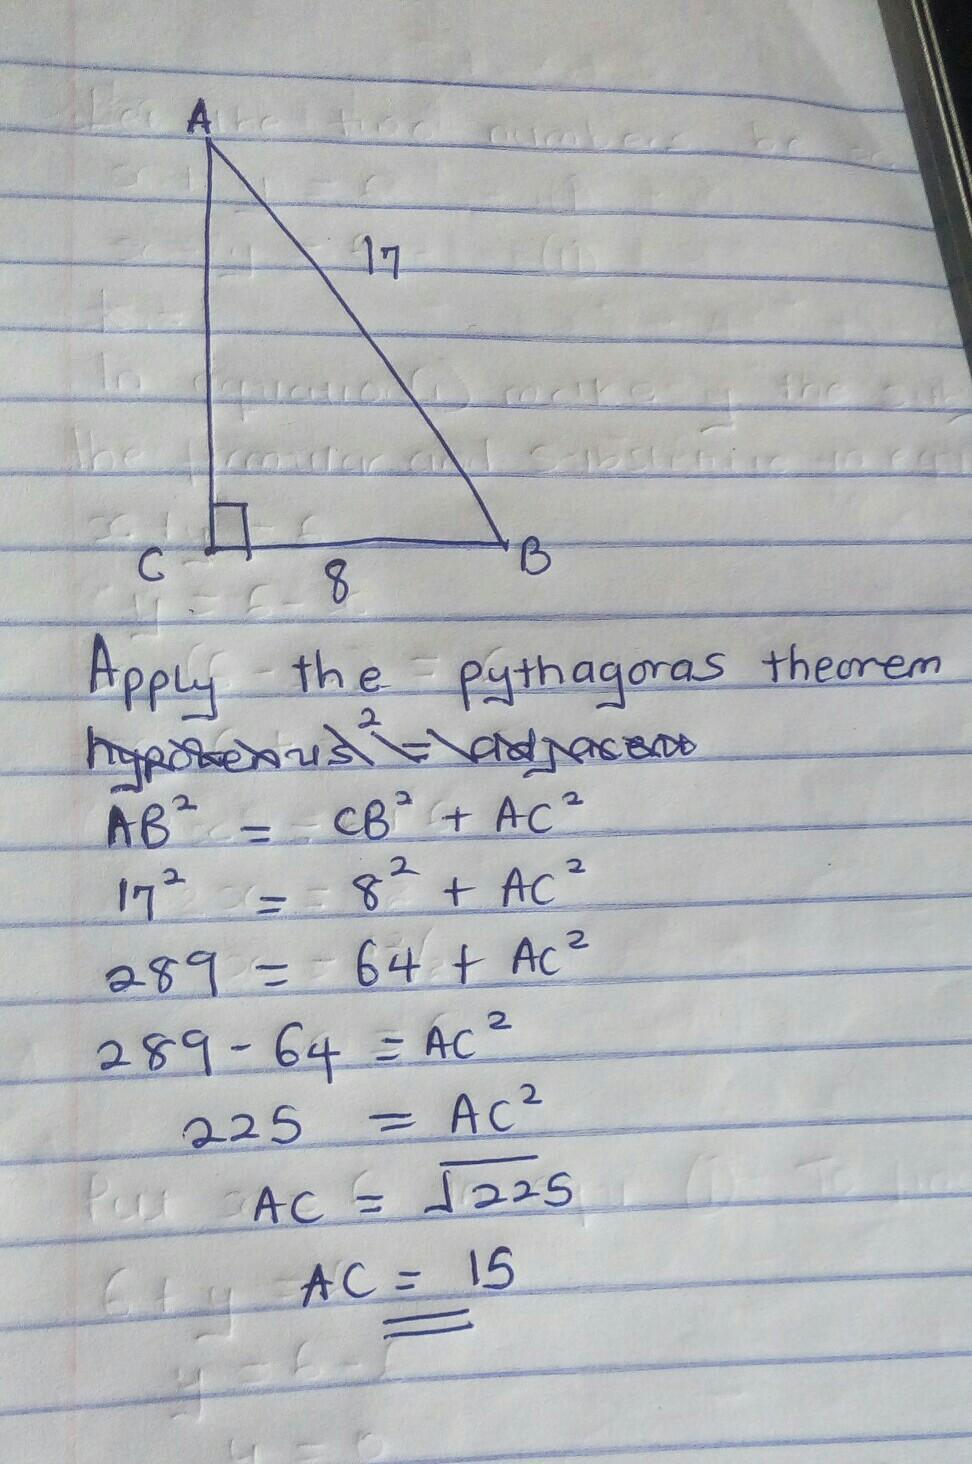 A
17
C
B
8
Apply the pythagoras theorem
AB² = CB² + AC²
17² = 8² + AC²
289 = 64 + AC²
289 - 64 = AC²
225 = AC²
AC = √225
AC = 15